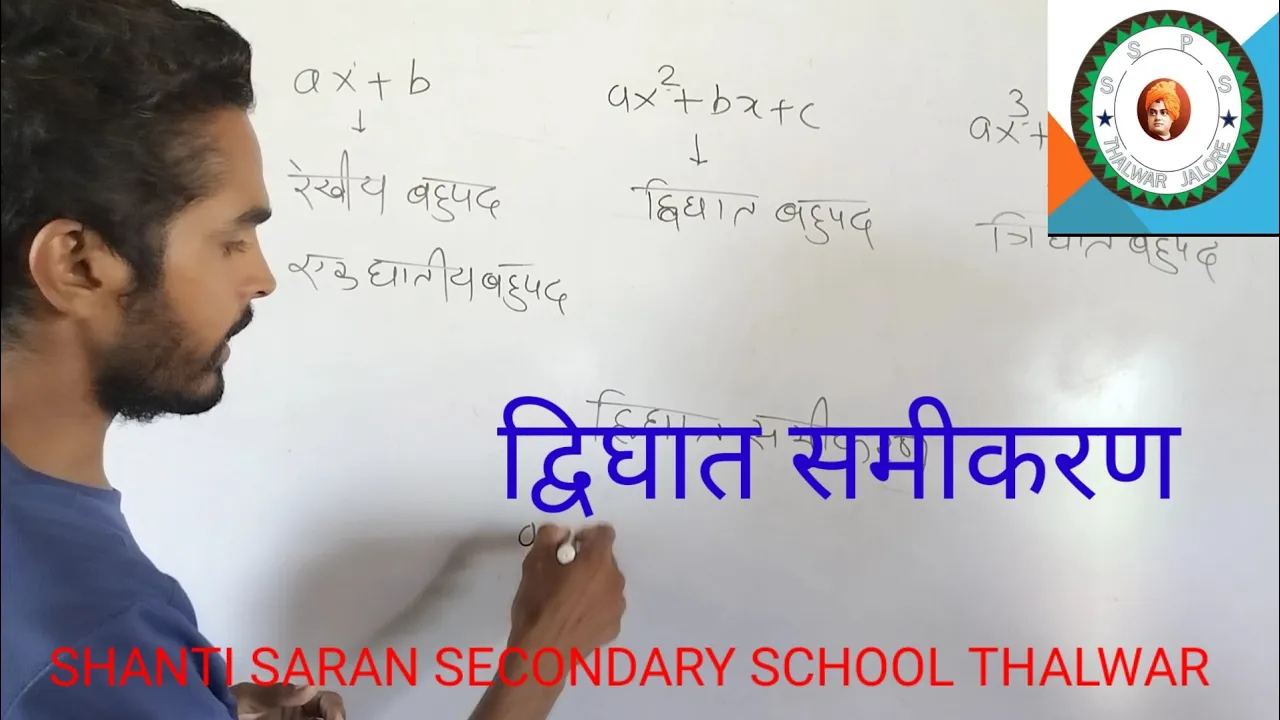 ax + b
↓
रेखीय बहुपद
एक घातीय बहुपद
ax² + bx + c
↓
द्विघात बहुपद
ax³ +
त्रिघात बहुपद
S S P S
THALWAR JALORE
द्विघात समीकरण
द्विघात समीकरण
a
SHANTI SARAN SECONDARY SCHOOL THALWAR